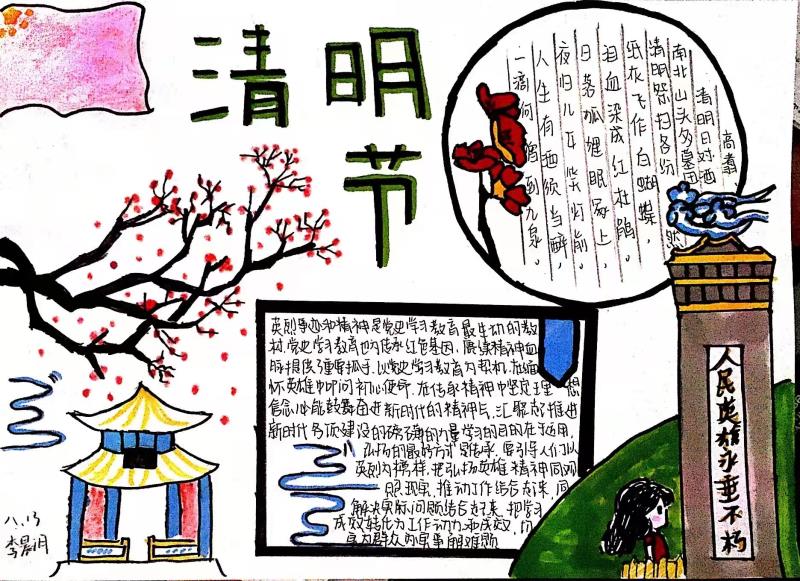 清明
节
清明日对酒
高翥
南北山头多墓田
清明祭扫各纷然
纸灰飞作白蝴蝶，
泪血染成红杜鹃。
日落狐狸眠冢上，
夜归儿女笑灯前。
人生有酒须当醉，
一滴何曾到九泉。
英烈事迹和精神是党史学习教育最生动的教
材,党史学习教育也为传承红色基因、赓续精神血
脉提供了重要抓手,以党史学习教育为契机,在缅
怀英雄中叩问初心使命,在传承精神中坚定理 想
信念,必能鼓舞奋进新时代的精神气,汇聚起推进
新时代各项建设的磅礴的力量学习的目的在于运用,
弘扬的最好方式是传承.要引导人们以
英烈为榜样,把弘扬英雄精神同观
照现实、推动工作结合起来,同
解决实际问题结合起来,把学习
成效转化为工作动力和成效,切
实为群众办实事解难题
人民英雄永垂不朽
八.13
李晨